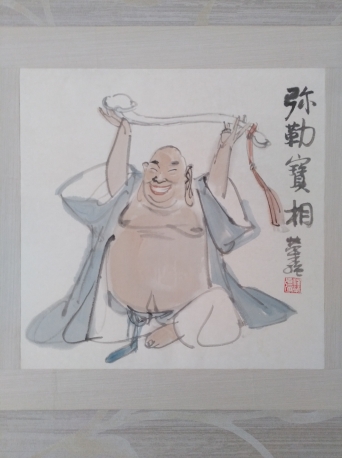 弥勒寶相